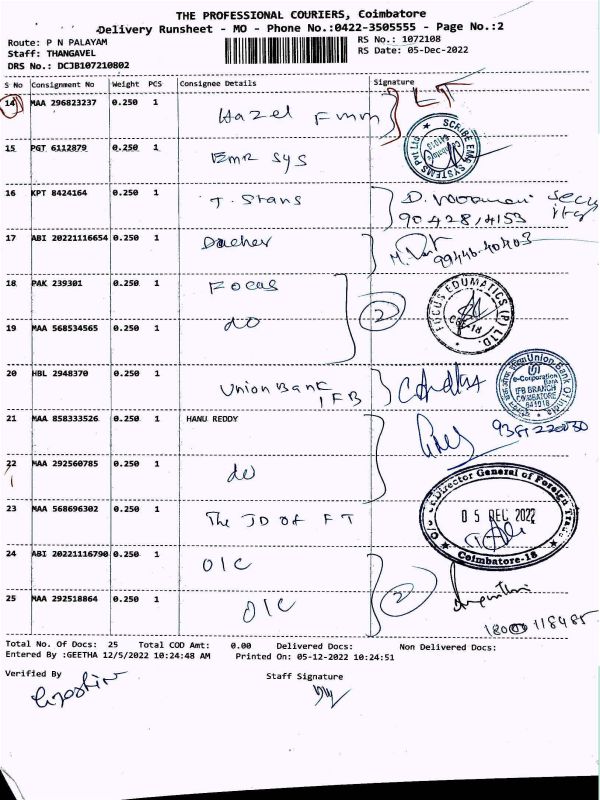 THE PROFESSIONAL COURIERS, Coimbatore
Delivery Runsheet - MO - Phone No.:0422-3505555 - Page No.:2
Route: P N PALAYAM
Staff: THANGAVEL
DRS No.: DCJB107210802
RS No.: 1072108
RS Date: 05-Dec-2022
S No Consignment No Weight PCS Consignee Details Signature
14 MAA 296823237 0.250 1 Hazel
15 PGT 6112879 0.250 1 EMR SYS
SCRIBE EMR SYSTEMS Pvt Ltd
16 KPT 8424164 0.250 1 T. Stans
17 ABI 20221116654 0.250 1 Dacher
99446-40403
18 PAK 239301 0.250 1 Focus
FOCUS EDUMATICS (P) LTD.
CBE-18
2
19 MAA 568534565 0.250 1 do
20 HBL 2948370 0.250 1 Union Bank IFB
Union Bank Of India
e-Corporation Bank
IFB BRANCH
COIMBATORE
641018
21 MAA 858333526 0.250 1 HANU REDDY
22 MAA 292560785 0.250 1 do
23 MAA 568696302 0.250 1 The JD of FT
Director General of Foreign Trade
05 DEC 2022
Coimbatore-18
24 ABI 20221116790 0.250 1 OIC
2
25 MAA 292518864 0.250 1 OIC
Total No. Of Docs: 25 Total COD Amt: 0.00 Delivered Docs: Non Delivered Docs:
Entered By :GEETHA 12/5/2022 10:24:48 AM Printed On: 05-12-2022 10:24:51
Verified By
Staff Signature